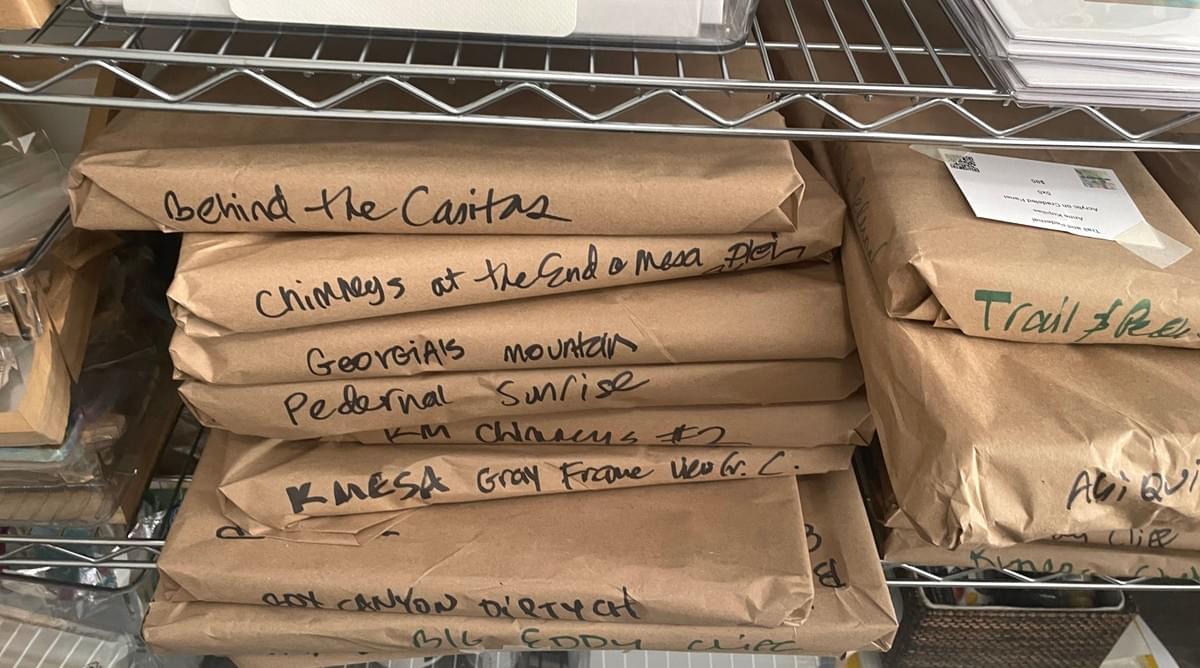 Behind the Casitas
Chimneys at the End o Mesa Plein
GEORGIA'S mountain
Pedernal Sunrise
KM Chimneys #2
K MESA Gray Frame View Gr. C.
BOX CANYON DIRTY CH
BIG EDDY Cliff
Trail and Pedernal
Anne Kupillas
Acrylic on Cradled Panel
5x5
Trail &
ABIQUI
Cliff